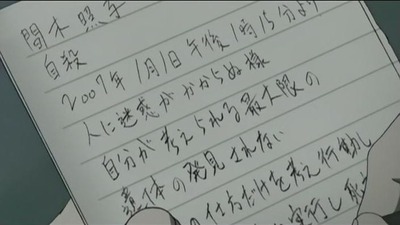 間木照子
自殺
2007年1月1日午後1時15分より
人に迷惑がかからぬ様
自分が考えられる最大限の
遺体の発見されない
の仕方だけを考え行動し
実行し死